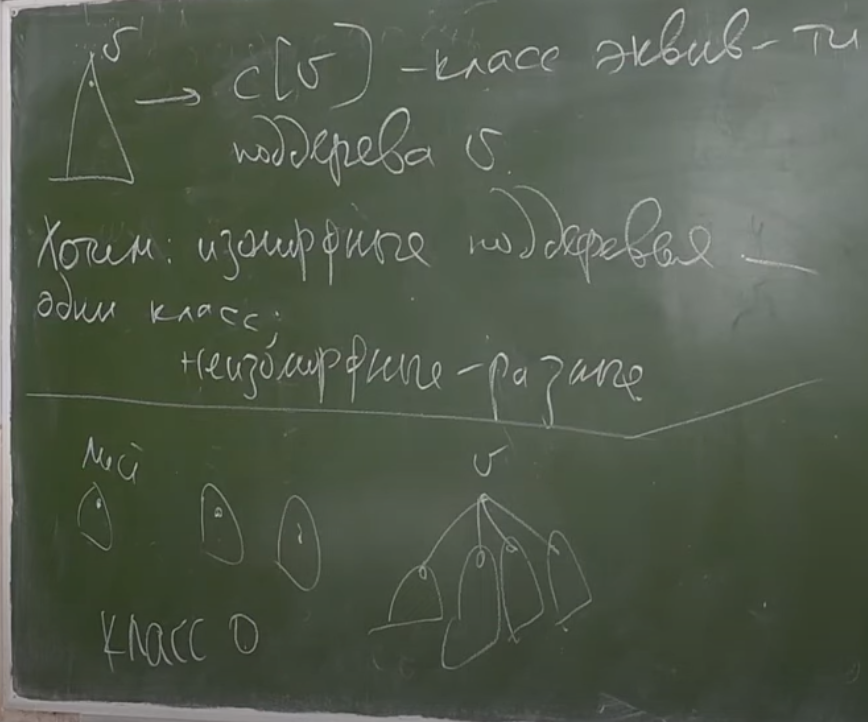 v → c[v] - класс эквив-ти
поддерева v.
Хотим: изоморфные поддеревья —
один класс;
неизоморфные - разные
Лист
v
класс 0